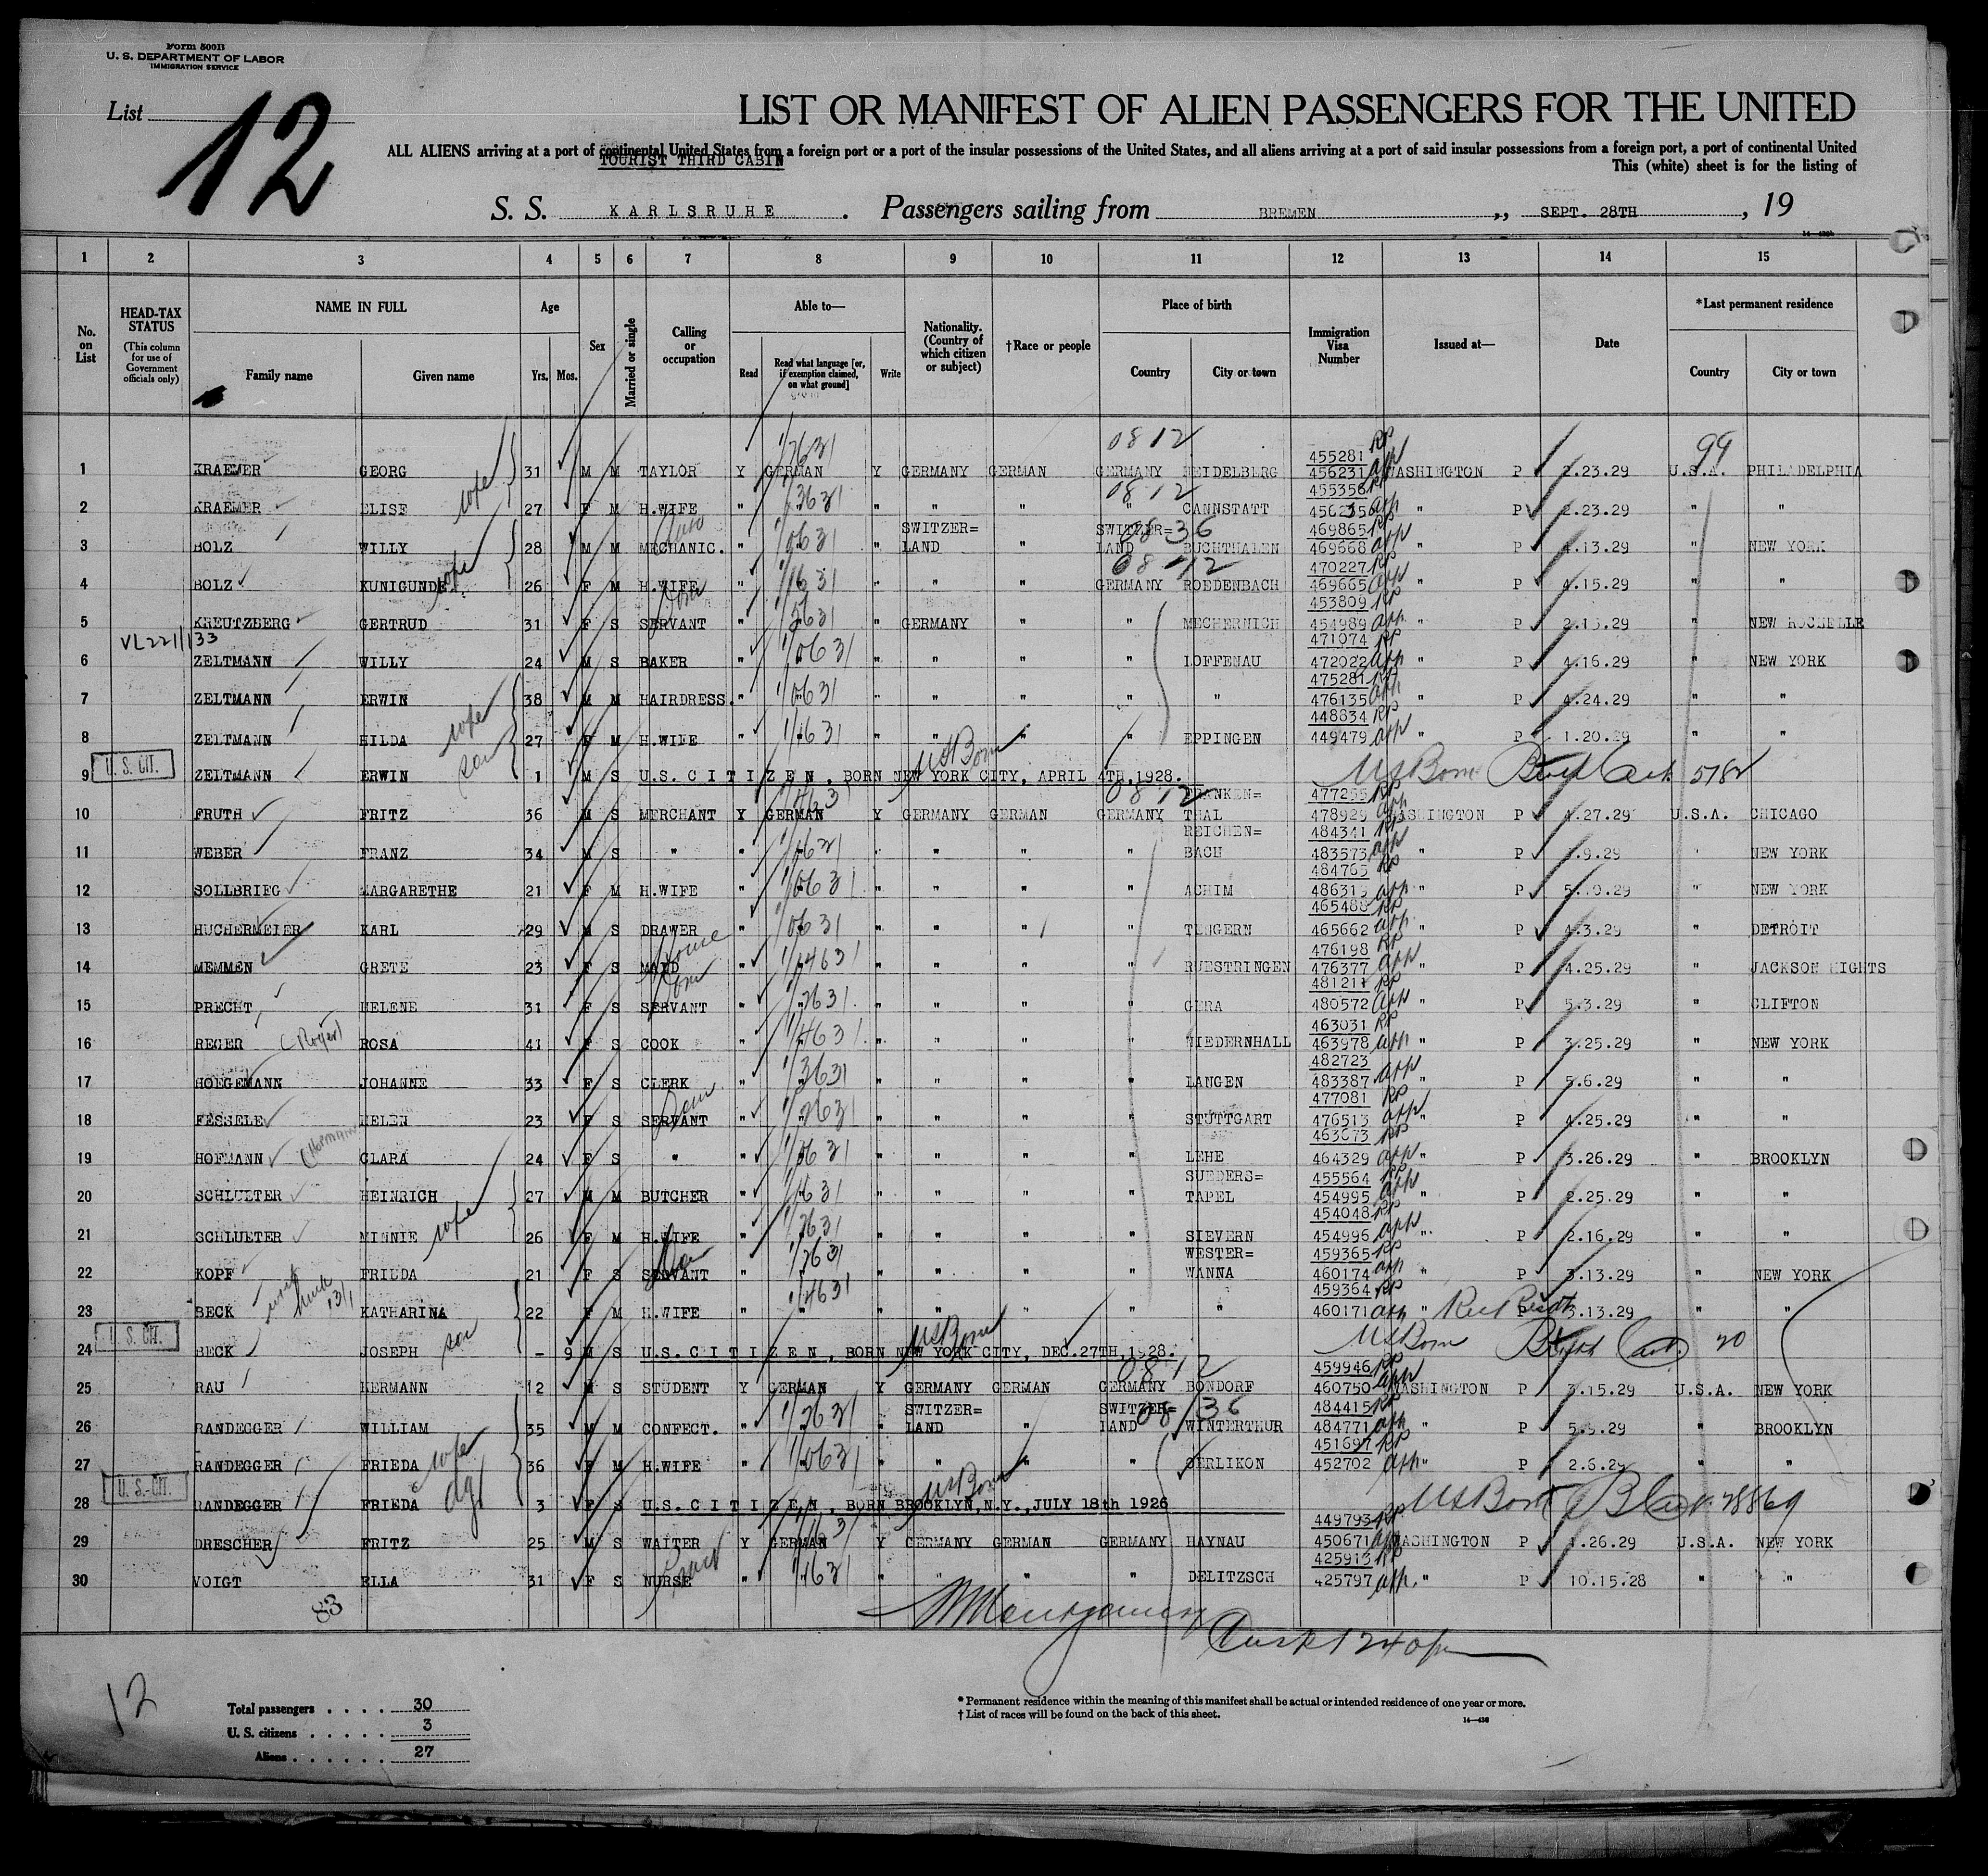 Form 500B
U. S. DEPARTMENT OF LABOR
IMMIGRATION SERVICE
List 12
LIST OR MANIFEST OF ALIEN PASSENGERS FOR THE UNITED
ALL ALIENS arriving at a port of continental United States from a foreign port or a port of the insular possessions of the United States, and all aliens arriving at a port of said insular possessions from a foreign port, a port of continental United
TOURIST THIRD CABIN
This (white) sheet is for the listing of
S. S. KARLSRUHE . Passengers sailing from BREMEN ,, SEPT. 28TH , 19
1 2 3 4 5 6 7 8 9 10 11 12 13 14 15
No. on List
HEAD-TAX STATUS (This column for use of Government officials only)
NAME IN FULL Family name Given name
Age Yrs. Mos.
Sex
Married or single
Calling or occupation
Able to— Read Read what language [or, if exemption claimed, on what ground] Write
Nationality. (Country of which citizen or subject)
†Race or people
Place of birth Country City or town
Immigration Visa Number
Issued at—
Date
*Last permanent residence Country City or town
1 KRAEMER GEORG 31 M M TAYLOR Y GERMAN Y GERMANY GERMAN GERMANY HEIDELBERG 455281 456231 WASHINGTON P 2.23.29 U.S.A. PHILADELPHIA
2 KRAEMER ELISE wife 27 F M H.WIFE " " " " " CANNSTATT 455358 456235 " P 2.23.29 " "
3 BOLZ WILLY 28 M M MECHANIC. " " SWITZER= LAND " SWITZER= LAND BUCHTHALEN 469865 469668 " P 4.13.29 " NEW YORK
4 BOLZ KUNIGUNDE wife 26 F M H.WIFE " " " " GERMANY ROEDENBACH 470227 469665 " P 4.15.29 " "
5 KREUTZBERG GERTRUD 31 F S SERVANT " " GERMANY " " MECHERNICH 453809 454989 " P 2.15.29 " NEW ROCHELLE
VL221/133
6 ZELTMANN WILLY 24 M S BAKER " " " " " LOFFENAU 471074 472022 " P 4.16.29 " NEW YORK
7 ZELTMANN ERWIN 38 M M HAIRDRESS. " " " " " " 475281 476135 " P 4.24.29 " "
8 ZELTMANN HILDA wife 27 F M H.WIFE " " " " " EPPINGEN 448834 449479 " P 1.20.29 " "
9 U. S. CIT. ZELTMANN ERWIN son 1 M S U.S. CITIZEN, BORN NEW YORK CITY, APRIL 4TH, 1928. US Born
10 FRUTH FRITZ 36 M S MERCHANT Y GERMAN Y GERMANY GERMAN GERMANY FRANKEN= THAL 477255 478929 WASHINGTON P 4.27.29 U.S.A. CHICAGO
11 WEBER FRANZ 34 M S " " " " " " REICHEN= BACH 484341 483573 " P 5.9.29 " NEW YORK
12 SOLLBRIEG MARGARETHE 21 F M H.WIFE " " " " " ACHIM 484765 486315 " P 5.10.29 " NEW YORK
13 HUCHERMEIER KARL 29 M S DRAWER " " " " " TUNGERN 465488 465662 " P 4.3.29 " DETROIT
14 MEMMEN GRETE 23 F S MAID " " " " " RUESTRINGEN 476198 476377 " P 4.25.29 " JACKSON HIGHTS
15 PRECHT HELENE 31 F S SERVANT " " " " " GERA 481211 480572 " P 5.3.29 " CLIFTON
16 REGER ROSA 41 F S COOK " " " " " NIEDERNHALL 463031 463978 " P 3.25.29 " NEW YORK
17 HOEGEMANN JOHANNE 33 F S CLERK " " " " " LANGEN 482723 483387 " P 5.6.29 " "
18 FESSELE HELEN 23 F S SERVANT " " " " " STUTTGART 477081 476513 " P 4.25.29 " "
19 HOFMANN CLARA 24 F S " " " " " " LEHE 463673 464329 " P 3.26.29 " BROOKLYN
20 SCHLUETER HEINRICH 27 M M BUTCHER " " " " " SUEDERS= TAPEL 455564 454995 " P 2.25.29 " "
21 SCHLUETER MINNIE wife 26 F M H.WIFE " " " " " SIEVERN 454048 454996 " P 2.16.29 " "
22 KOPF FRIEDA 21 F S SERVANT " " " " " WESTER= WANNA 459365 460174 " P 3.13.29 " NEW YORK
23 BECK KATHARINA 22 F M H.WIFE " " " " " " 459364 460171 " P 3.13.29 " "
24 U. S. CIT. BECK JOSEPH son - 9 M S U.S. CITIZEN, BORN NEW YORK CITY, DEC.27TH, 1928. US Born
25 RAU HERMANN 12 M S STUDENT Y GERMAN Y GERMANY GERMAN GERMANY BONDORF 459946 460750 WASHINGTON P 3.15.29 U.S.A. NEW YORK
26 RANDEGGER WILLIAM 35 M M CONFECT. " " SWITZER= LAND " SWITZER= LAND WINTERTHUR 484415 484771 " P 5.9.29 " BROOKLYN
27 RANDEGGER FRIEDA wife 36 F M H.WIFE " " " " " OERLIKON 451697 452702 " P 2.6.29 " "
28 U. S. CIT. RANDEGGER FRIEDA dgt 3 F S U.S. CITIZEN, BORN BROOKLYN, N.Y., JULY 18th 1926 US Born
29 DRESCHER FRITZ 25 M S WAITER Y GERMAN Y GERMANY GERMAN GERMANY HAYNAU 449793 450671 WASHINGTON P 1.26.29 U.S.A. NEW YORK
30 VOIGT ELLA 31 F S NURSE " " " " " DELITZSCH 425913 425797 " P 10.15.28 " "
83
12
Total passengers . . . . 30
U. S. citizens . . . . . 3
Aliens . . . . . . 27
* Permanent residence within the meaning of this manifest shall be actual or intended residence of one year or more.
† List of races will be found on the back of this sheet.